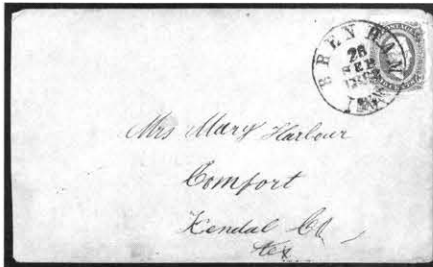 BRENHAM
28
SEP
TEX
Mrs Mary Harbour
Comfort
Kendal Co
Tex